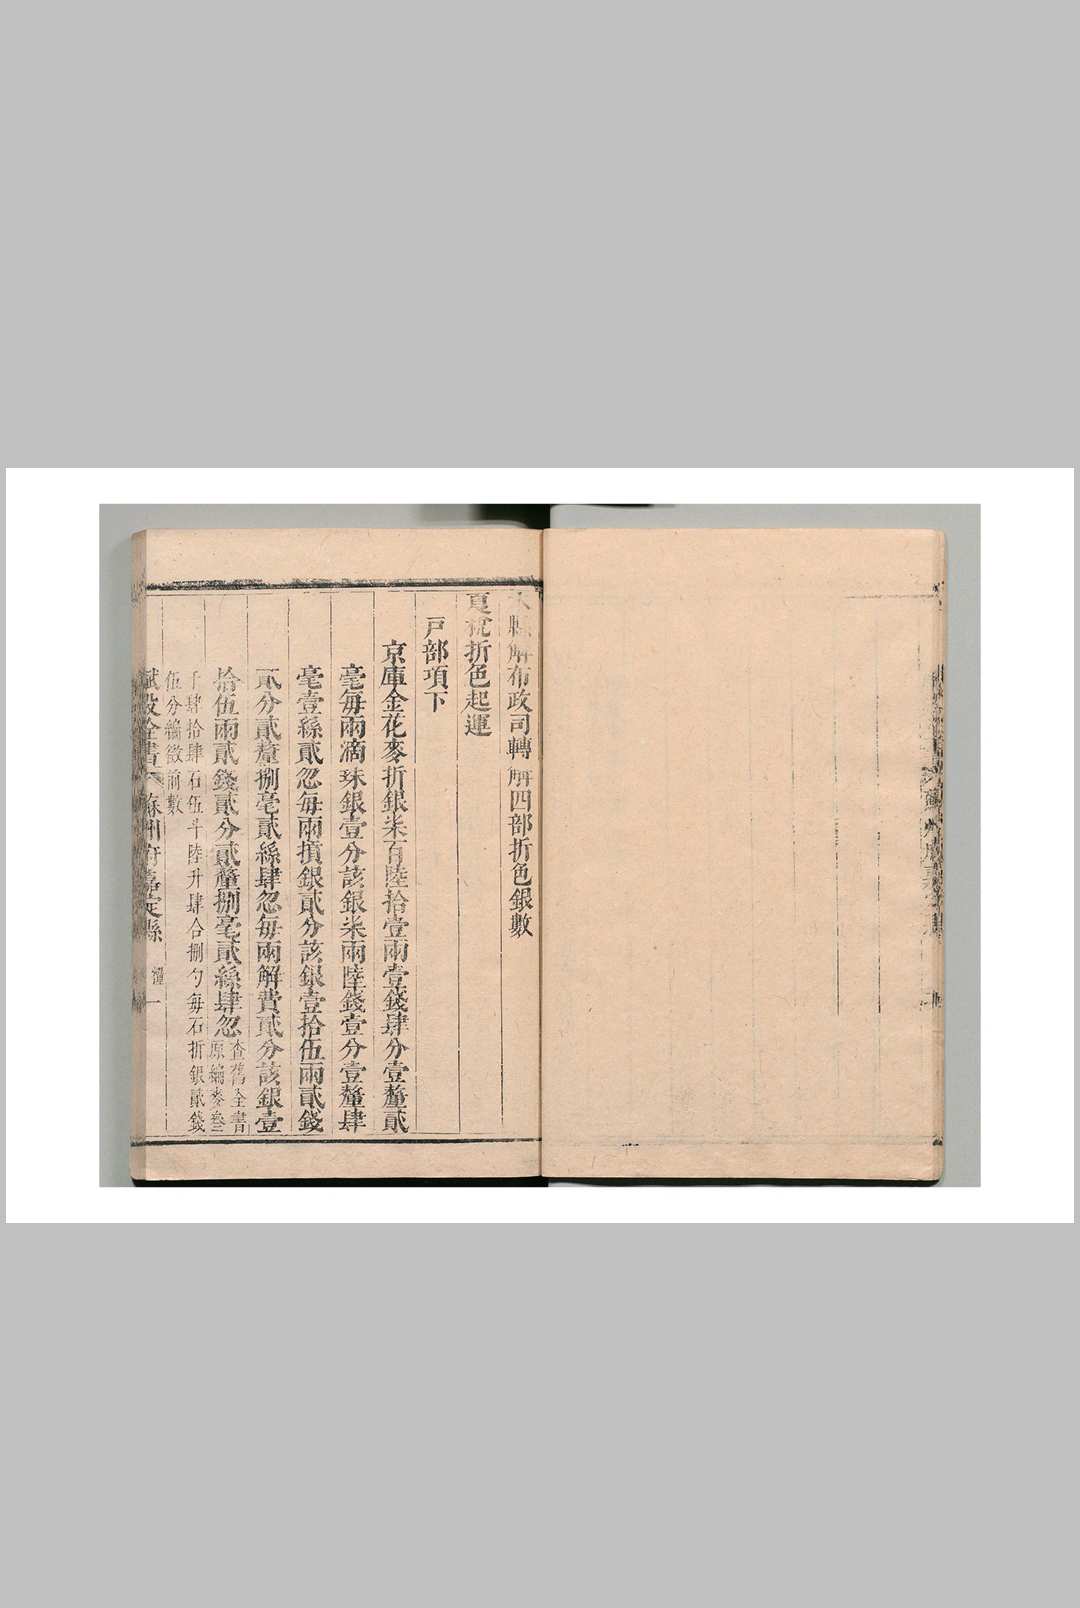 本縣解布政司轉解四部折色銀數
夏稅折色起運
戶部項下
京庫金花麥折銀柒百陸拾壹兩壹錢肆分壹釐貳
毫每兩滴珠銀壹分該銀柒兩陸錢壹分壹釐肆
毫壹絲貳忽每兩摃銀貳分該銀壹拾伍兩貳錢
貳分貳釐捌毫貳絲肆忽每兩解費貳分該銀壹
拾伍兩貳錢貳分貳釐捌毫貳絲肆忽
查舊全書
原編麥叁
千肆拾肆石伍斗陸升肆合捌勺每石折銀貳錢
伍分編徵前數
賦役全書 蘇州府嘉定縣 糧 一